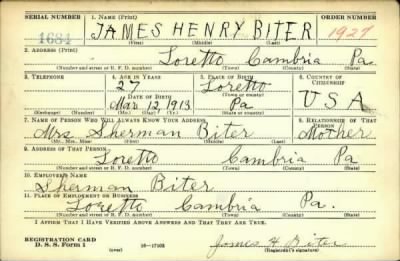 SERIAL NUMBER 1. NAME (Print) ORDER NUMBER
1684 JAMES HENRY BITER 1927
(First) (Middle) (Last)
2. ADDRESS (Print)
Loretto Cambria Pa.
(Number and street or R. F. D. number) (Town) (County) (State)
3. TELEPHONE 4. AGE IN YEARS 5. PLACE OF BIRTH 6. COUNTRY OF CITIZENSHIP
27 Loretto
DATE OF BIRTH (Town or county)
Mar 12, 1913 Pa USA
(Exchange) (Number) (Mo.) (Day) (Yr.) (State or country)
7. NAME OF PERSON WHO WILL ALWAYS KNOW YOUR ADDRESS 8. RELATIONSHIP OF THAT PERSON
Mrs Sherman Biter Mother
(Mr., Mrs., Miss) (First) (Middle) (Last)
9. ADDRESS OF THAT PERSON
Loretto Cambria Pa
(Number and street or R. F. D. number) (Town) (County) (State)
10. EMPLOYER'S NAME
Sherman Biter
11. PLACE OF EMPLOYMENT OR BUSINESS
Loretto Cambria Pa.
(Number and street or R. F. D. number) (Town) (County) (State)
I AFFIRM THAT I HAVE VERIFIED ABOVE ANSWERS AND THAT THEY ARE TRUE.
REGISTRATION CARD
D. S. S. Form 1 (over) 16-17105 James H Biter
(Registrant's signature)